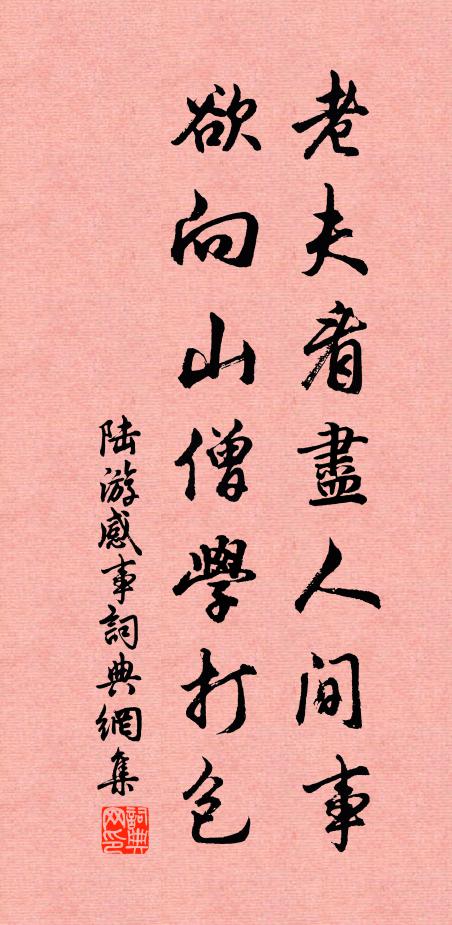 老夫看盡人間事
欲向山僧學打包
陆游感事詞典網集
詞典网印